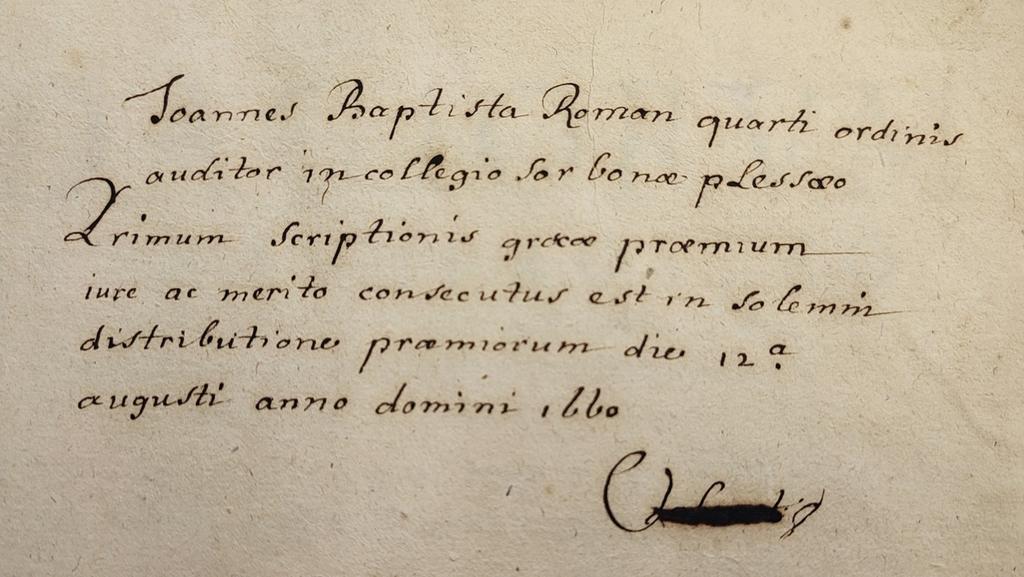 Ioannes Baptista Roman quarti ordinis
auditor in collegio sorbonæ plessæo
Primum scriptionis græcæ præmium
iure ac merito consecutus est in solemni
distributione præmiorum die 12ª
augusti anno domini 1660